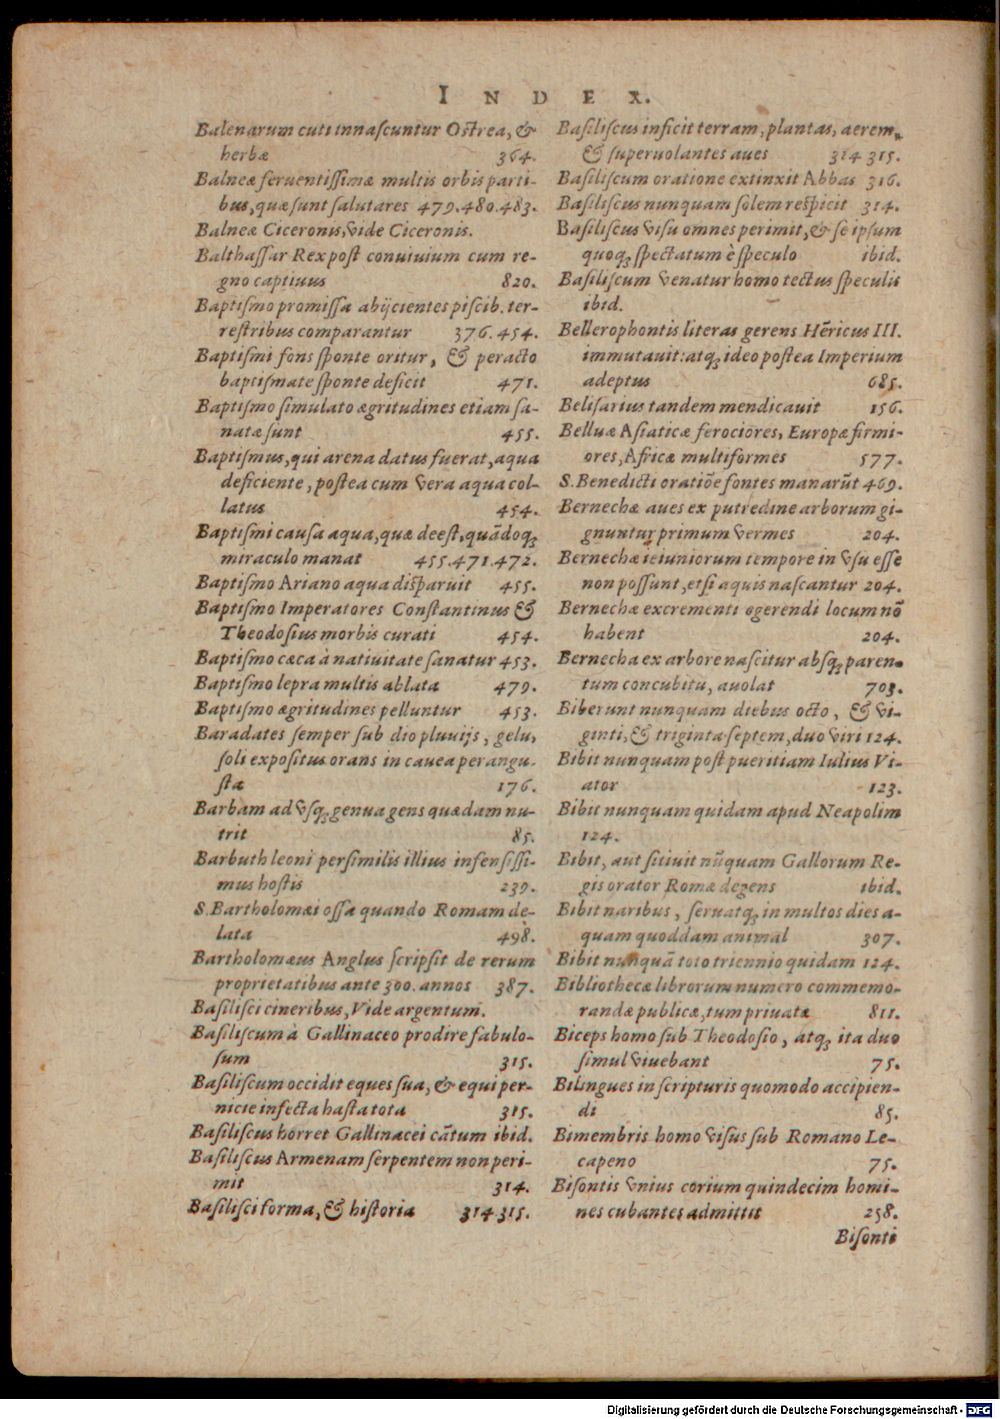 INDEX.
Balenarum cuti innaſcuntur Oſtrea, &
herbæ 364.
Balneæ feruentiſſimæ multis orbis parti-
bus, quæ ſunt ſalutares 479.480.483.
Balneæ Ciceronis, vide Ciceronis.
Balthaſſar Rex poſt conuiuium cum re-
gno captiuus 820.
Baptiſmo promiſſa abijcientes piſcib. ter-
reſtribus comparantur 376.454.
Baptiſmi fons ſponte oritur, & peracto
baptiſmate ſponte deficit 471.
Baptiſmo ſimulato ægritudines etiam ſa-
natæ ſunt 455.
Baptiſmus, qui arena datus fuerat, aqua
deficiente, poſtea cum vera aqua col-
latus 454.
Baptiſmi cauſa aqua, quæ deeſt, quādoqꝫ
miraculo manat 455.471.472.
Baptiſmo Ariano aqua diſparuit 455.
Baptiſmo Imperatores Conſtantinus &
Theodoſius morbis curati 454.
Baptiſmo cæca à natiuitate ſanatur 453.
Baptiſmo lepra multis ablata 479.
Baptiſmo ægritudines pelluntur 453.
Baradates ſemper ſub dio pluuijs, gelu,
ſoli expoſitus orans in cauea perangu-
ſta 176.
Barbam ad vſqꝫ genua gens quædam nu-
trit 85.
Barbuth leoni perſimilis illius infenſiſſi-
mus hoſtis 239.
S. Bartholomæi oſſa quando Romam de-
lata 498.
Bartholomæus Anglus ſcripſit de rerum
proprietatibus ante 300. annos 387.
Baſiliſci cineribus, Vide argentum.
Baſiliſcum à Gallinaceo prodire fabulo-
ſum 315.
Baſiliſcum occidit eques ſua, & equi per-
nicie infecta haſta tota 315.
Baſiliſcus horret Gallinacei cātum ibid.
Baſiliſcus Armenam ſerpentem non peri-
mit 314.
Baſiliſci forma, & hiſtoria 314 315.
Baſiliſcus inficit terram, plantas, aerem,
& ſuperuolantes aues 314 315.
Baſiliſcum oratione extinxit Abbas 316.
Baſiliſcus nunquam ſolem reſpicit 314.
Baſiliſcus viſu omnes perimit, & ſe ipſum
quoqꝫ ſpectatum è ſpeculo ibid.
Baſiliſcum venatur homo tectus ſpeculis
ibid.
Bellerophontis literas gerens Hēricus III.
immutauit: atqꝫ ideo poſtea Imperium
adeptus 685.
Beliſarius tandem mendicauit 156.
Belluæ Aſiaticæ ferociores, Europæ firmi-
ores, Africæ multiformes 577.
S. Benedicti oratiōe fontes manarūt 469.
Bernechæ aues ex putredine arborum gi-
gnuntur primum vermes 204.
Bernechæ ieiuniorum tempore in vſu eſſe
non poſſunt, etſi aquis naſcantur 204.
Bernechæ excrementi egerendi locum nō
habent 204.
Bernecha ex arbore naſcitur abſqꝫ paren-
tum concubitu, auolat 703.
Biberunt nunquam diebus octo, & vi-
ginti, & triginta-ſeptem, duo viri 124.
Bibit nunquam poſt pueritiam Iulius Vi-
ator 123.
Bibit nunquam quidam apud Neapolim
124.
Bibit, aut ſitiuit nūquam Gallorum Re-
gis orator Romæ degens ibid.
Bibit naribus, ſeruatqꝫ in multos dies a-
quam quoddam animal 307.
Bibit nunquā toto triennio quidam 124.
Bibliothecæ librorum numero commemo-
randæ publicæ, tum priuatæ 811.
Biceps homo ſub Theodoſio, atqꝫ ita duo
ſimul viuebant 75.
Bilingues in ſcripturis quomodo accipien-
di 85.
Bimembris homo viſus ſub Romano Le-
capeno 75.
Biſontis vnius corium quindecim homi-
nes cubantes admittit 258.
Biſonti
Digitalisierung gefördert durch die Deutsche Forschungsgemeinschaft - DFG